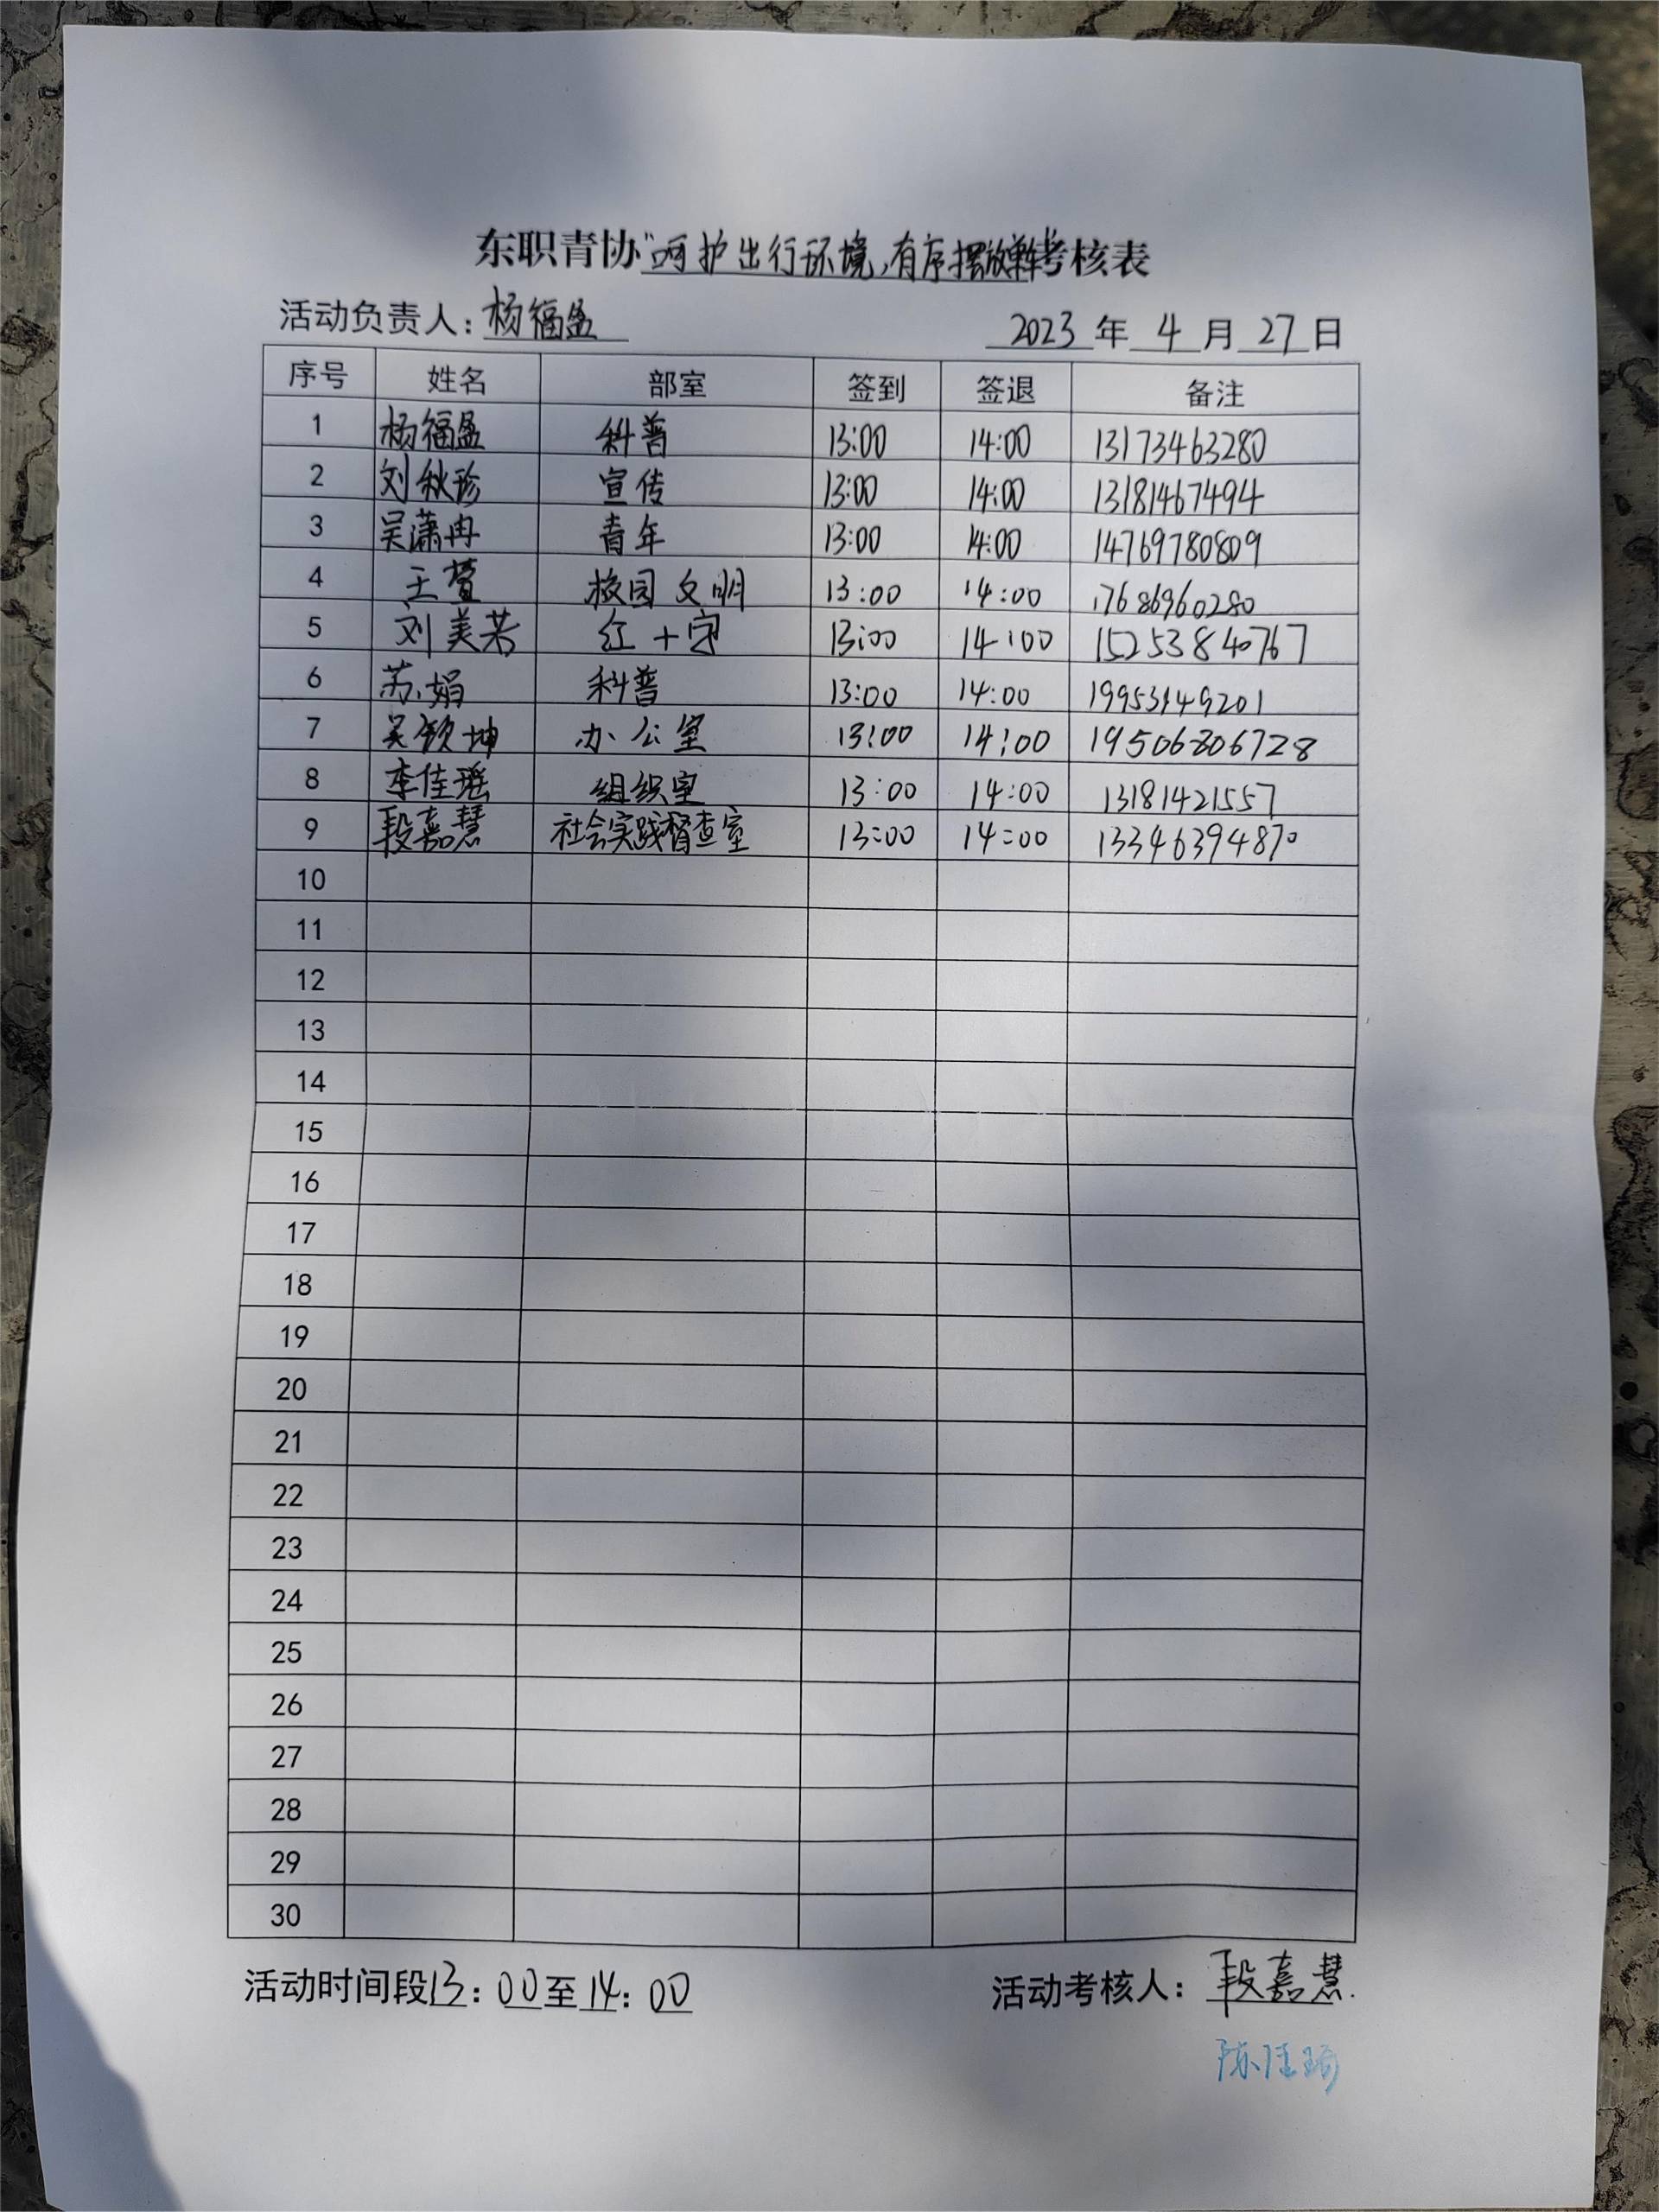 东职青协“呵护出行环境,有序摆放单车考核表
活动负责人：杨福盈 2023年4月27日
序号 姓名 部室 签到 签退 备注
1 杨福盈 科普 13:00 14:00 13173463280
2 刘秋珍 宣传 13:00 14:00 13181467494
3 吴潇冉 青年 13:00 14:00 14769780809
4 王萱 校园文明 13:00 14:00 17686960280
5 刘美若 红十字 13:00 14:00 15253840767
6 苏娟 科普 13:00 14:00 19953149201
7 吴钦坤 办公室 13:00 14:00 19506306728
8 李佳瑶 组织室 13:00 14:00 13181421557
9 段嘉慧 社会实践督查室 13:00 14:00 13346394870
10
11
12
13
14
15
16
17
18
19
20
21
22
23
24
25
26
27
28
29
30
活动时间段13：00至14：00 活动考核人：段嘉慧.
陈佳琦